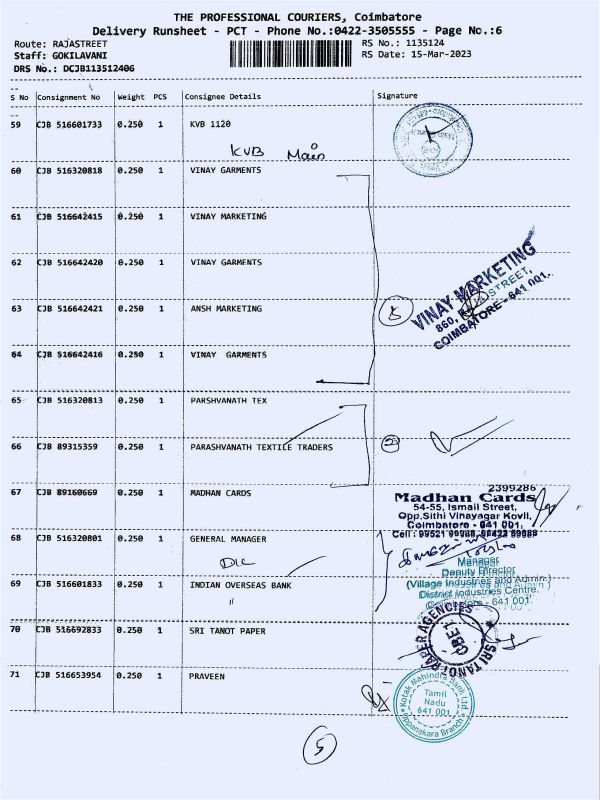 THE PROFESSIONAL COURIERS, Coimbatore
Delivery Runsheet - PCT - Phone No.:0422-3505555 - Page No.:6
Route: RAJASTREET RS No.: 1135124
Staff: GOKILAVANI RS Date: 15-Mar-2023
DRS No.: DCJB113512406
S No Consignment No Weight PCS Consignee Details Signature
59 CJB 516601733 0.250 1 KVB 1120
KVB Main
60 CJB 516320818 0.250 1 VINAY GARMENTS
61 CJB 516642415 0.250 1 VINAY MARKETING
62 CJB 516642420 0.250 1 VINAY GARMENTS
63 CJB 516642421 0.250 1 ANSH MARKETING
5
VINAY MARKETING
COIMBATORE - 641 001.
64 CJB 516642416 0.250 1 VINAY GARMENTS
65 CJB 516320813 0.250 1 PARSHVANATH TEX
66 CJB 89315359 0.250 1 PARASHVANATH TEXTILE TRADERS
67 CJB 89160669 0.250 1 MADHAN CARDS
2399286
Madhan Cards
54-55, Ismail Street,
Opp.Sithi Vinayagar Kovil,
Coimbatore - 641 001.
68 CJB 516320801 0.250 1 GENERAL MANAGER
DIC
Manager
Deputy Director
(Village Industries and Admin)
District Industries Centre,
69 CJB 516601833 0.250 1 INDIAN OVERSEAS BANK
"
70 CJB 516692833 0.250 1 SRI TANOT PAPER
SRI TANOT PAPER AGENCIES
CBE-1
71 CJB 516653954 0.250 1 PRAVEEN
Kotak Mahindra Bank Ltd
Tamil
Nadu
641 001
Oppanakara Branch
5